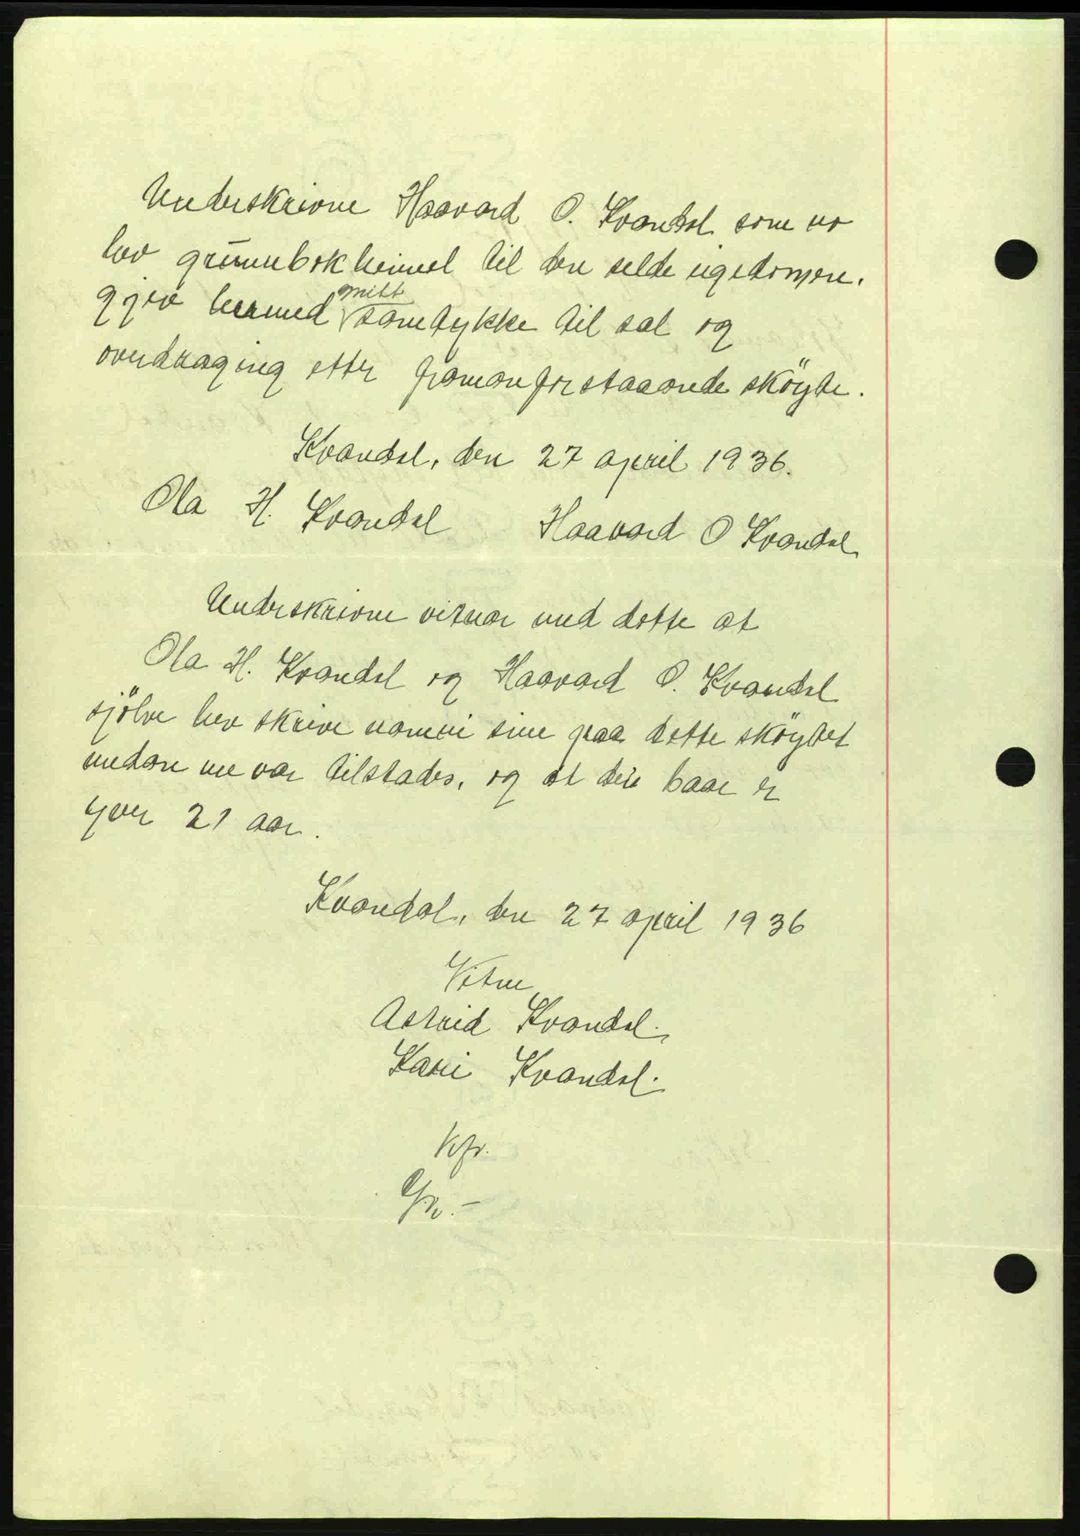 Underskrivne Haavard O. Kvandal som no
hev grunnbokheimel til den selde eigedomen.
gjev hermed mitt samtykke til sal og
overdraging etter framanforstaaande sköyte.
Kvandal, den 27 april 1936.
Ola H. Kvandal Haavard O Kvandal
Underskrivne vitnar med dette at
Ola H. Kvandal og Haavard O. Kvandal
sjölve hev skrive namni sine paa dette sköytet
medan me var tilstades, og at dei baae er
yver 21 aar.
Kvandal, den 27 april 1936
Vitne
Astrid Kvandal.
Kari Kvandal.
Kfr.